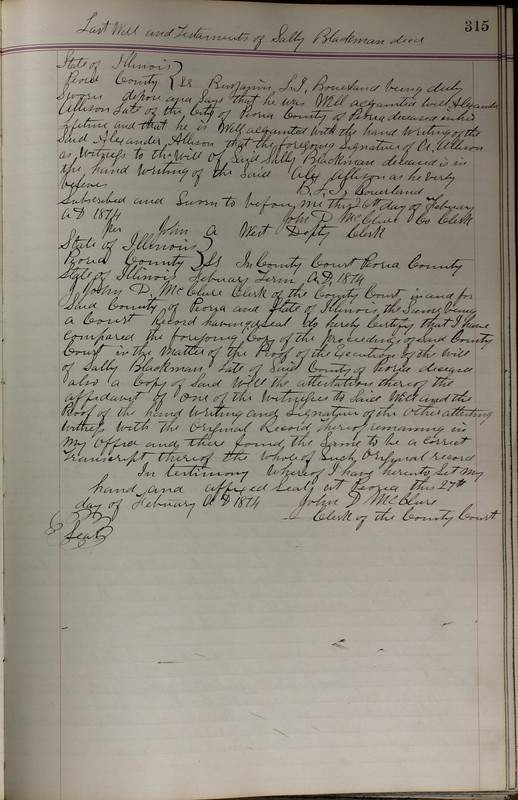 315
Last Will and Testaments of Sally Blackman decd
State of Illinois
Peoria County } SS Benjamin L.T. Bourland being duly
Sworn depose and Says that he was Well acquainted with Alexander
Allison Late of the City of Peoria County of Peoria deceased in his
Lifetime and that he is Well acquainted with the hand Writing of the
Said Alexander Allison that the foregoing Signature of A. Allison
as Witness to the Will of Said Sally Blackman deceased is in
the hand Writing of the Said Alex Allison as he verly
believes B. L. T. Bourland
Subscribed and Sworn to before me this 26th day of February
A D 1874 John D. McClure Co Clerk
Per John A West Depty Clerk
State of Illinois
Peoria County } SS In County Court Peoria County
State of Illinois February Term A.D. 1874
I John D. McClure Clerk of the County Court in and for
Said County of Peoria and State of Illinois, the Same being
a Court Record having Seal do hereby Certify that I have
Compared the foregoing Copy of the Proceedings of Said County
Court in the Matter of the Proof of the Execution of the Will
of Sally Blackman Late of Said County of Peoria deceased
also a Copy of Said Will the attestation thereof the
affidavit of One of the Witnesses to Said Will and the
Proof of the hand Writing and Signature of the Other attesting
Witness With the Original Record hereof remaining in
My Office and have found the Same to be a Correct
Transcript thereof the whole of Such Original record
In testimony Whereof I have hereunto Set My
hand and affixed Seal at Peoria this 27th
day of February A D 1874 John D McClure
Clerk of the County Court
Seal